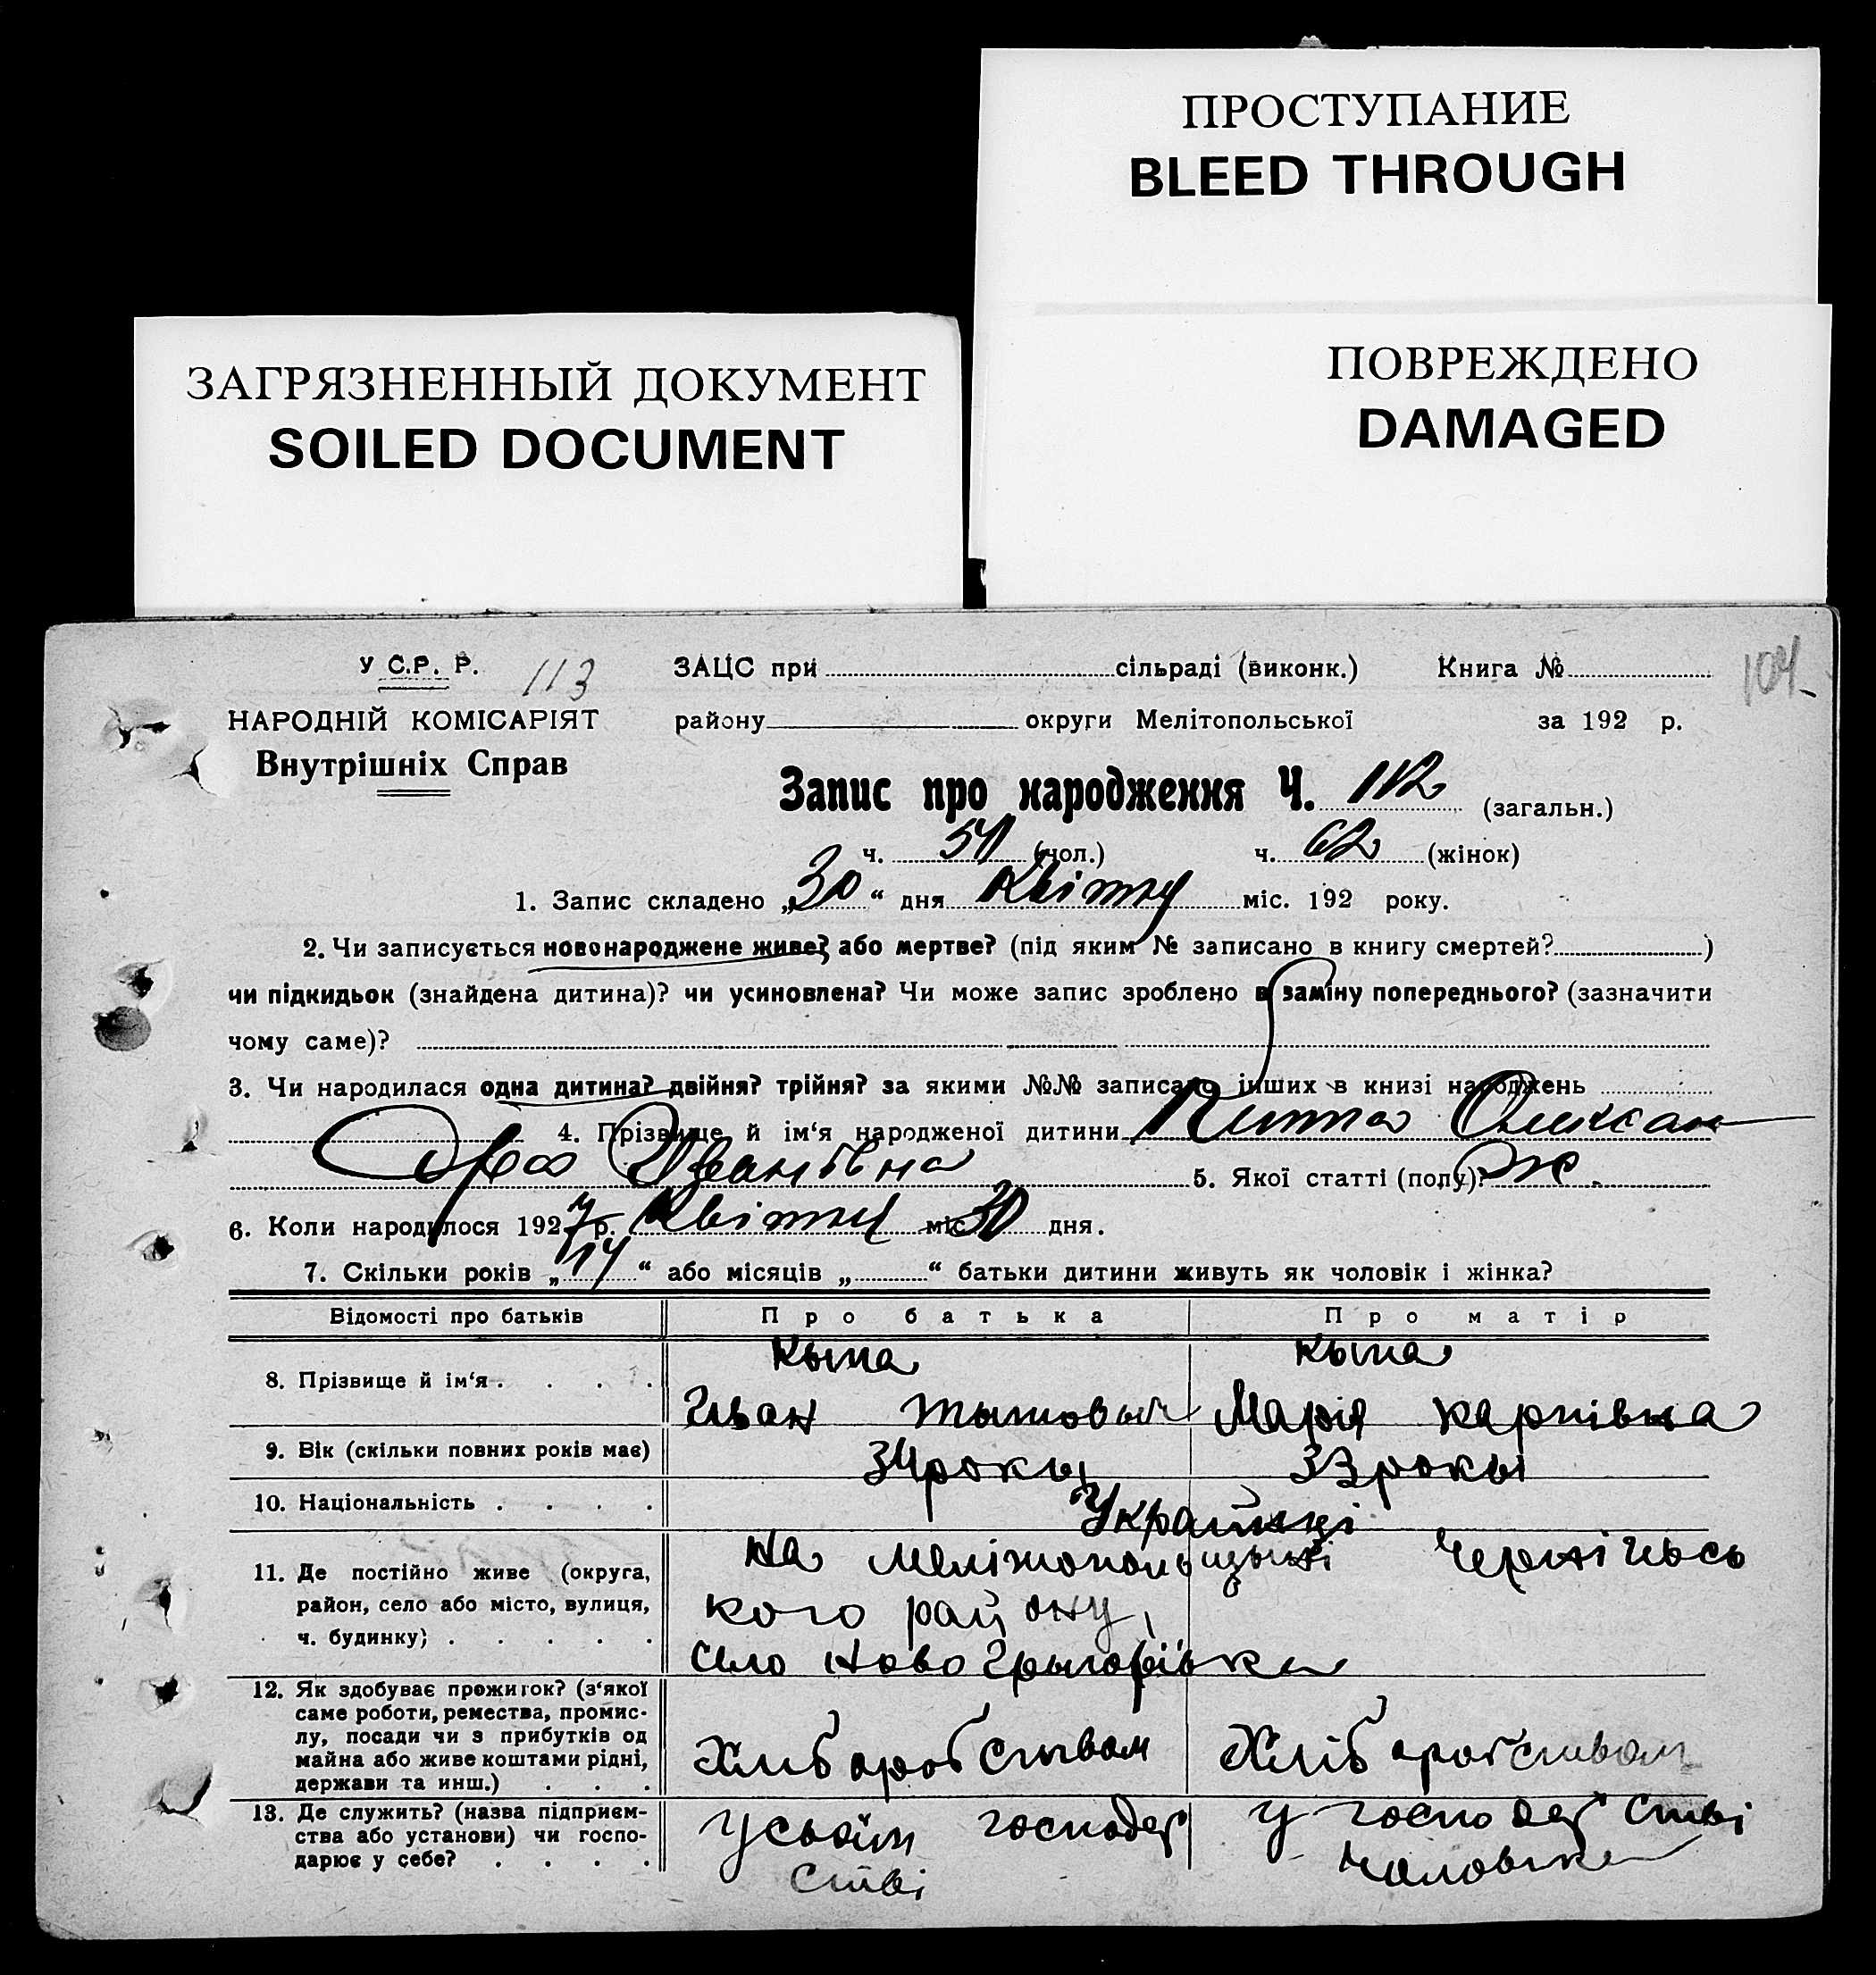 ПРОСТУПАНИЕ
BLEED THROUGH
ЗАГРЯЗНЕННЫЙ ДОКУМЕНТ
SOILED DOCUMENT
ПОВРЕЖДЕНО
DAMAGED
У С.Р. Р. 113 ЗАЦС при сільраді (виконк.) Книга № 104
НАРОДНІЙ КОМІСАРІЯТ району округи Мелітопольської за 192 р.
Внутрішніх Справ
Запис про народження Ч. 112 (загальн.)
ч. 50 (чол.) ч. 62 (жінок)
1. Запис складено „30“ дня Квітня міс. 192 року.
2. Чи записується новонароджене живе? або мертве? (під яким № записано в книгу смертей? )
чи підкидьок (знайдена дитина)? чи усиновлена? Чи може запис зроблено в заміну попереднього? (зазначити
чому саме)?
3. Чи народилася одна дитина? двійня? трійня? за якими №№ записано інших в книзі народжень
4. Прізвище й ім‘я народженої дитини Олексан
дра Іванівна 5. Якої статті (полу)? ж.
6. Коли народилося 1927 р. Квітня міс. 30 дня.
7. Скільки років „14“ або місяців „ “ батьки дитини живуть як чоловік і жінка?
Відомості про батьків Про батька Про матір
Кыпа Кыпа
8. Прізвище й ім‘я . . . . Іван Марія Карпівна
9. Вік (скільки повних років має) 34 рокы 33 рокы
10. Національність . . . . Українці
11. Де постійно живе (округа, На Мелітопольщыні Чернігівсь
район, село або місто, вулиця, кого району,
ч. будинку) . . . . . село Ново Грыгорівка
12. Як здобуває прожиток? (з‘якої
саме роботи, ремества, промис-
лу, посади чи з прибутків од
майна або живе коштами рідні, Хліборобством Хліборобством
держави та инш.) . . .
13. Де служить? (назва підприєм- У своїм господар У господарстві
ства або установи) чи госпо- стві чоловіка
дарює у себе? . . . .